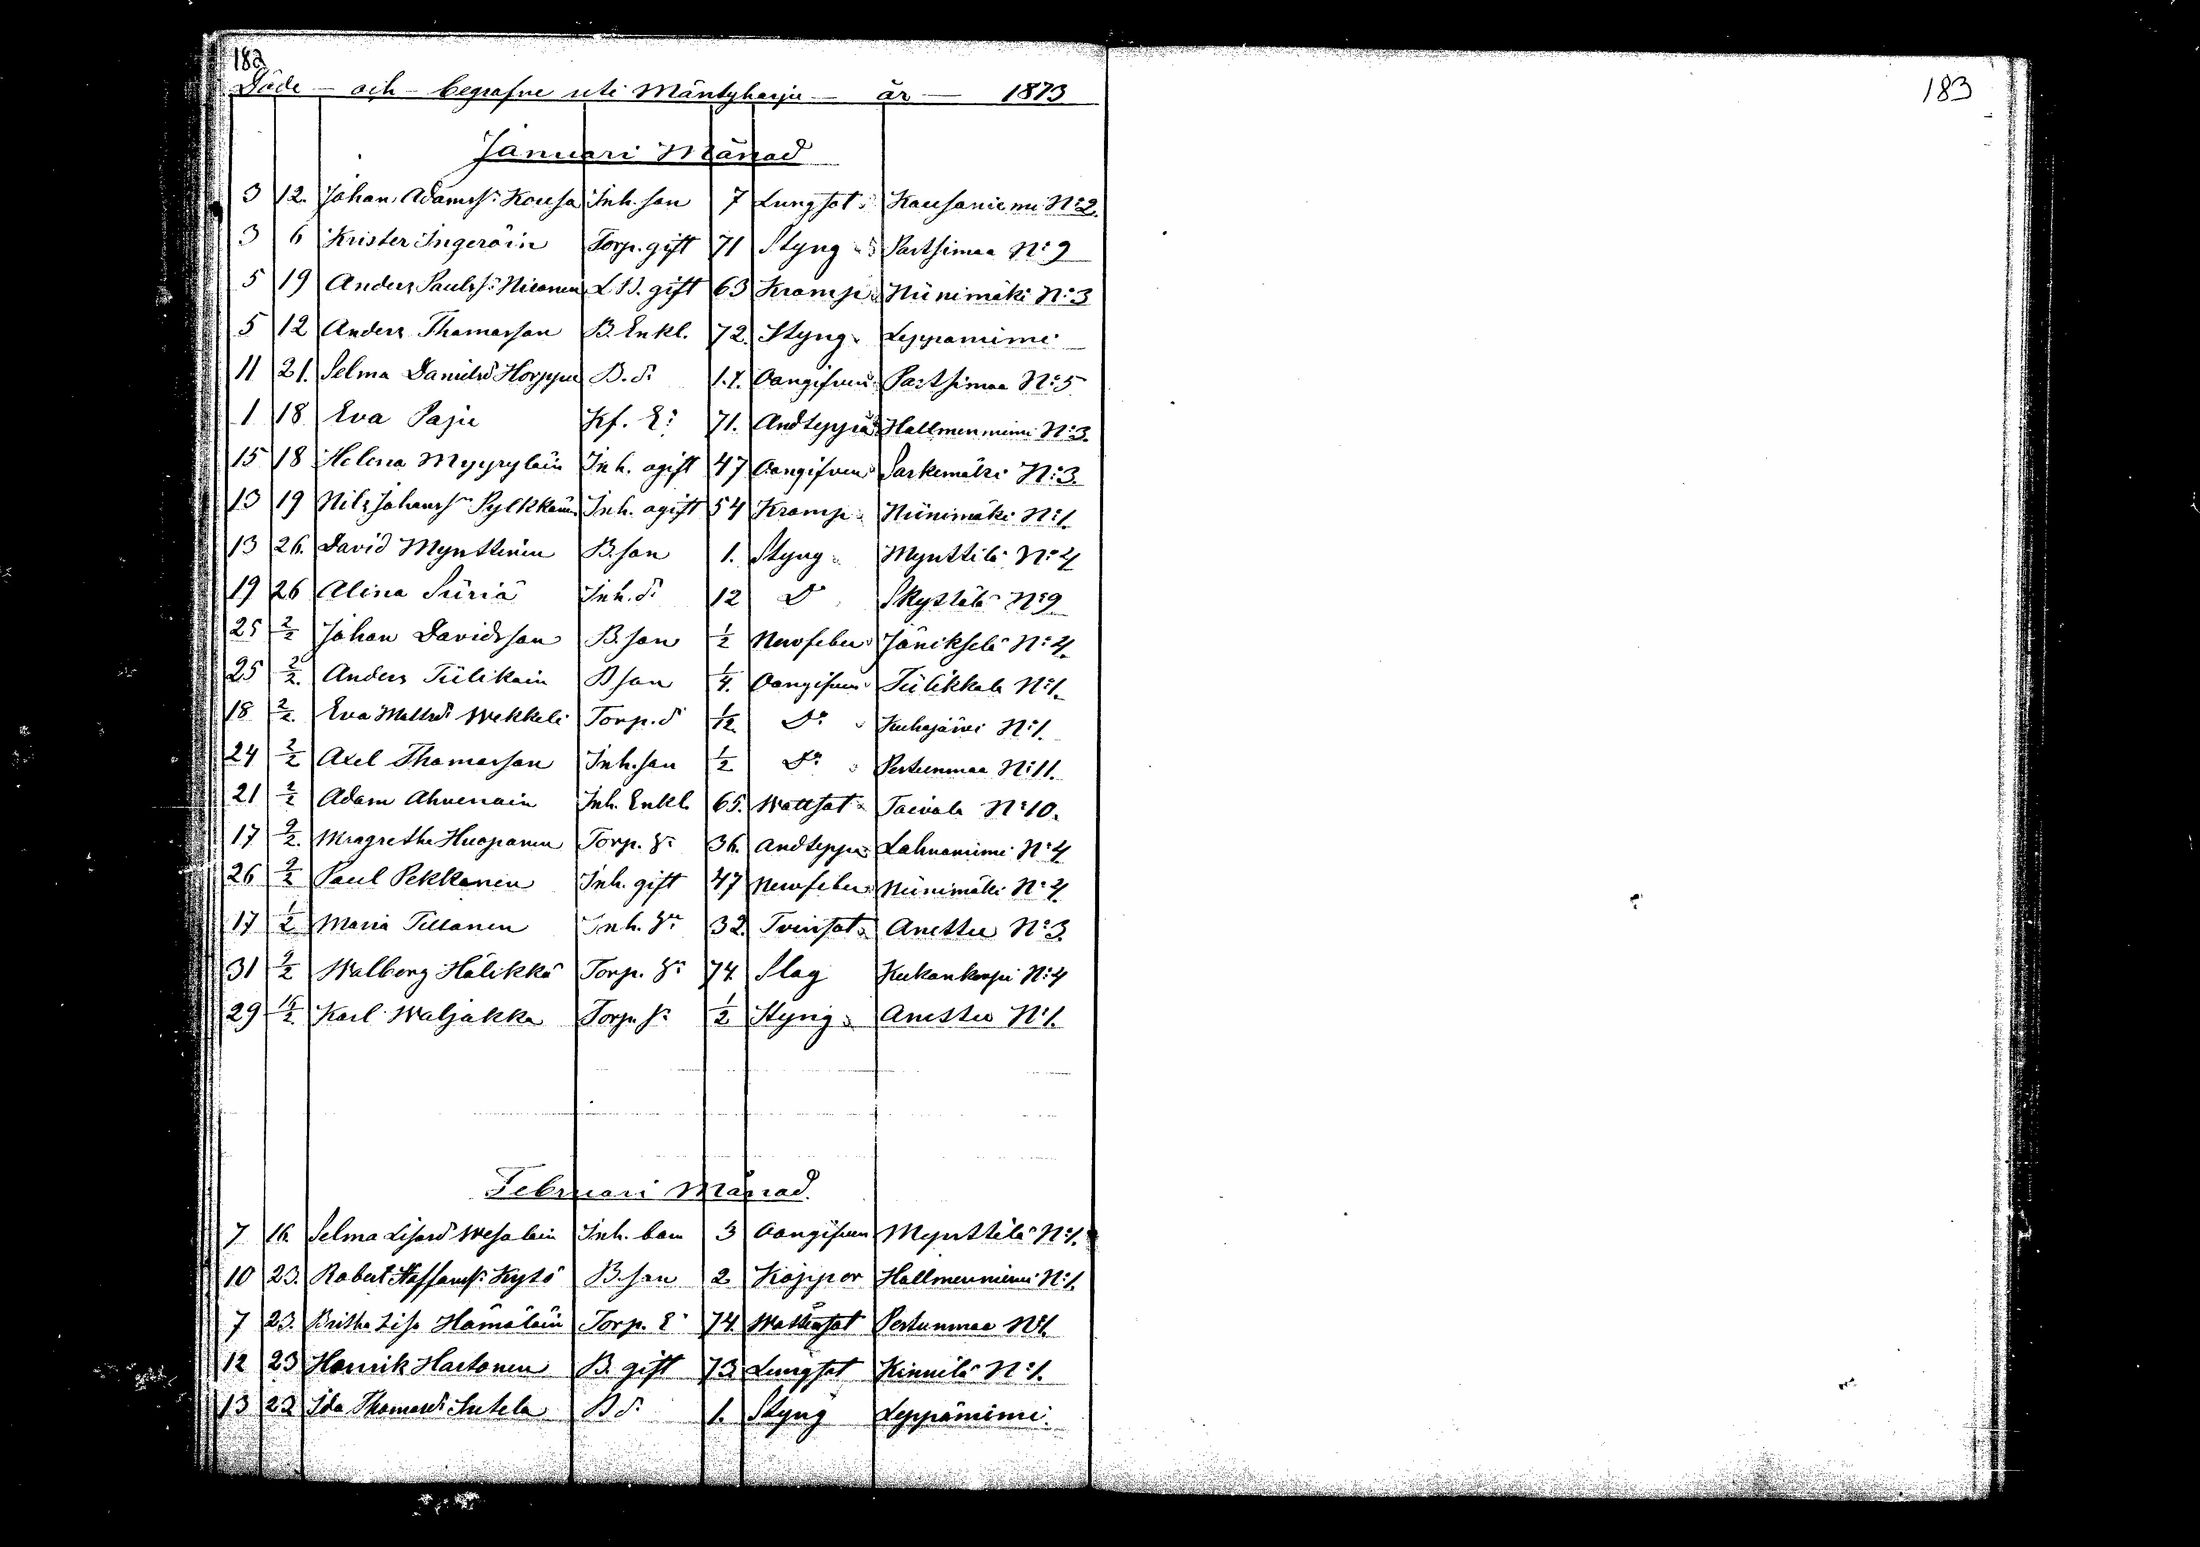 182
Döde — och — begrafne uti Mäntyharju — år — 1873
183
Januari Månad
3 12. Johan Adamss: Kousa Inh. son 7 Lungsot Kousaniemi No:2.
3 6 Krister Ingeröin Torp. gift 71 Styng Partsimaa No:9
5 19 Anders Paulss: Nironen L.B. gift 63 Kramp Niinimäki No:3
5 12 Anders Thomasson B. Enkl. 72. Styng Leppäniemi
11 21. Selma Danielsd: Horppu B. d: 1.1. Oangifven Partsimaa No:5
1 18 Eva Paju Kf. E: 71. Andteppa Hallmenniemi No:3.
15 18 Helena Myyryläin Inh. ogift 47 Oangifven Sarkamäki No:3.
13 19 Nils Johanss: Pylkkänen Inh. ogift 54 Kramp Niinimäki No:1.
13 26. David Mynttinen B. son 1. Styng Mynttilä No:4
19 26 Alina Siiriä Inh. d: 12 Do Skyttälä No:9
25 2/2 Johan Davidsson B. son 1/2 Nervfeber Jänikselä No:4.
25 2/2. Anders Tiilikain B son 1/4. Oangifven Tiilikkala No:1.
18 2/2. Eva Mattsd: Wekkeli Torp. d 1/12. Do: Kuhajärvi No:1.
24 2/2 Axel Thomasson Inh. son 1/2 Do: Pertunmaa No:11.
21 2/2 Adam Ahvenain Inh. Enkl. 65. Wattsot Toivola No:10.
17 2/2. Mragretha Huopanen Torp. h: 36. Andteppa Lahnaniemi No:4
26 2/2 Paul Pekkanen Inh. gift 47 Nervfeber Niinimäki No:4
17 1/2 Maria Tiltanen Inh. h: 32. Tvinsot Anettu No:3
31 9/2 Walborg Hälikkä Torp. h: 74. Slag Kukonkorpi No:4
29 16/2 Karl Waljakka Torp. s: 1/2 Styng Anettu No:1.
Februari Månad.
7 16. Selma Lisasd: Wesalain Inh. barn 3 Oangifven Mynttilä No:1.
10 23. Robert Staffanss: Kytö B. son 2 Koppor Hallmenniemi No:1.
7 23. Britha Lisa Hämäläin Torp. E: 74. Wattensot Pertunmaa No:1.
12 23 Henrik Hartonen B. gift 73. Lungsot Kinnilä No:1.
13 23 Ida Thomasd: Sutela B d: 1. Styng Leppäniemi.